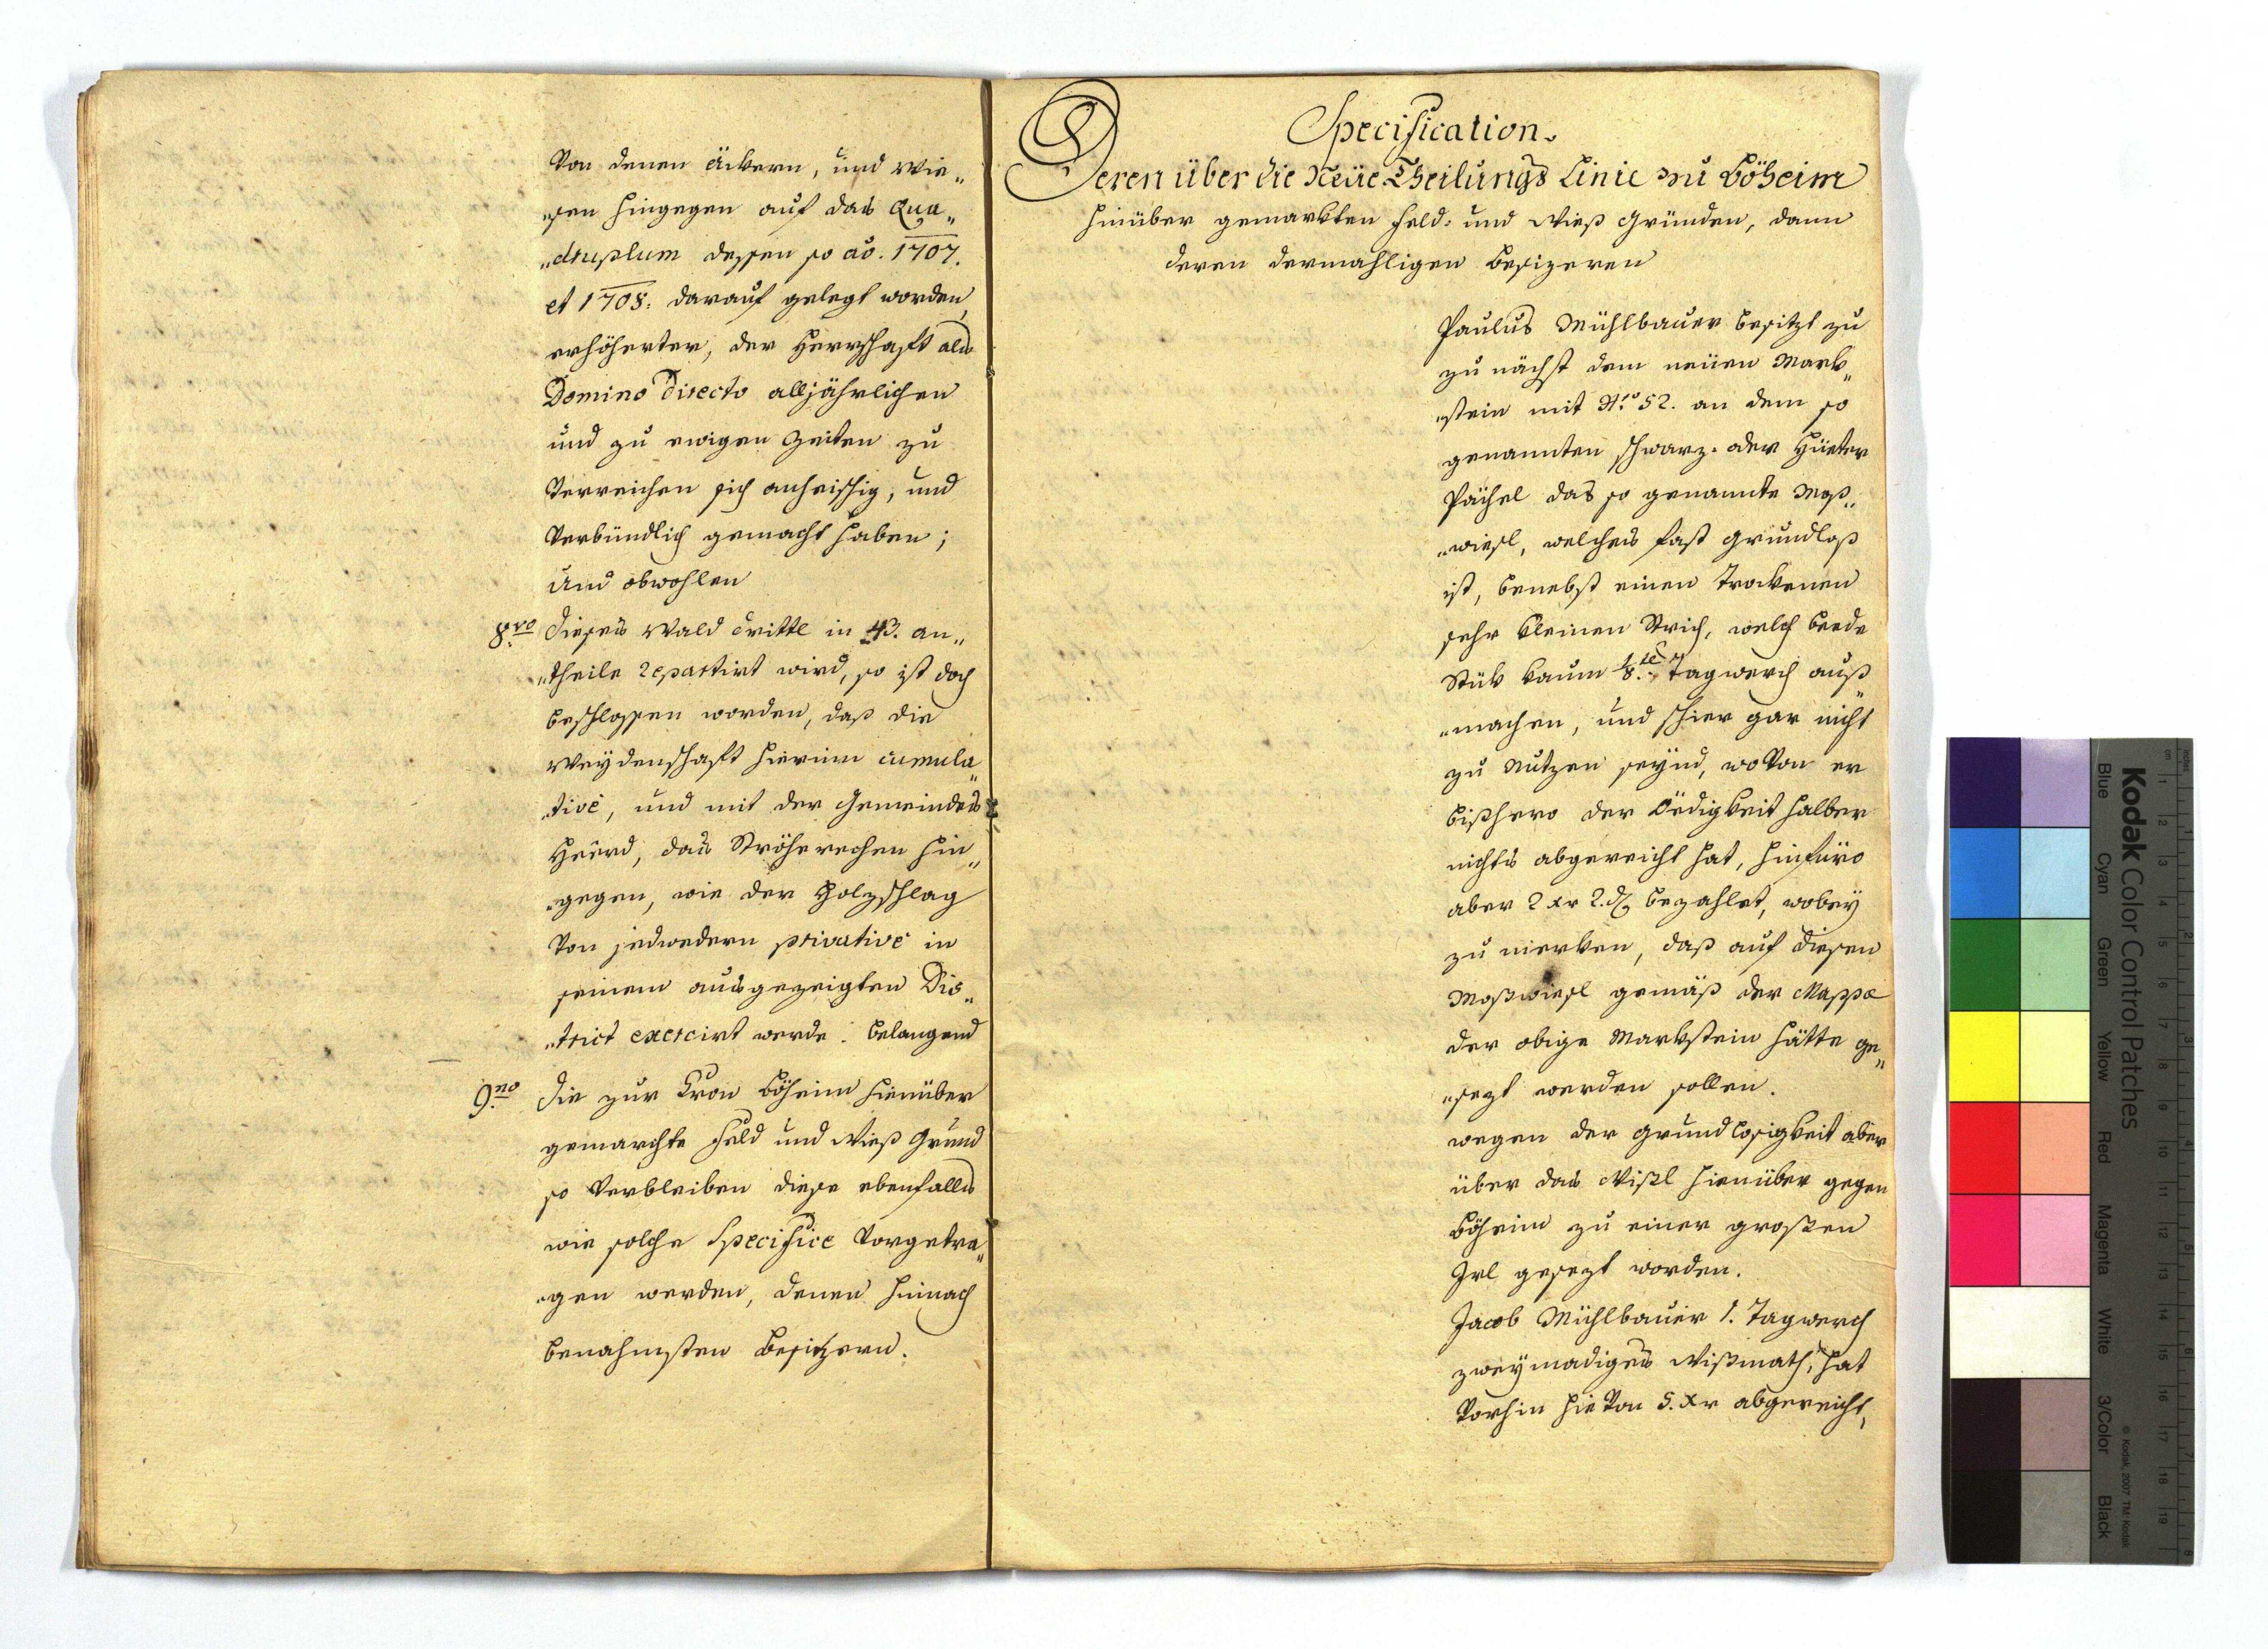 Von denen Äckern, und Wie„
„sen hingegen auf das Qua„
„druplum dessen so ao. 1707.
et 1708. darauf gelegt worden,
erhöherter, der Herrschaft als
Domino directo alljährlichen
und zu ewigen Zeiten zu
Verreichen sich anheischig, und
Verbündlich gemacht haben;
und obwohlen
8vo dieses Wald drittl in 43. an„
„theile repartirt wird, so ist doch
beschlossen worden, daß die
Weydenschaft hierinn cumula„
„tivè, und mit der Gemeinds
Heerd, das Ströherechen hin„
„gegen, wie der Holzschlag
Von jedwedern privativè in
seinem ausgezeigten Dis„
„trict exercirt werde. belangend
9no die zur Cron Böheim hienüber
gemarchte Feld und Wieß Gründ
so Verbleiben diese ebenfalls
wie solche Specifice Vorgetra„
„gen werden, denen hinnach
benahmsten Besitzern.
Specification.
Deren über die Neüe Theilungs Linie zu Böheim
hinüber gemarkten Feld- und Wieß Gründen, dann
deren dermahligen Besizeren
Paulus Mühlbauer besitzt zu
zu nächst dem neuen Mark„
„stein mit No. 52. an dem so
genannten schwarz- oder Hüeter
Pächel das so genannte Moß„
„wiesl, welches fast grundloß
ist, benebst einen Trockenen
sehr kleinen Strich, welch beede
Stük kaum 1/8.tl Tagwerch auß„
„machen, und schier gar nicht
zu nutzen seynd, woVon er
bißhero der Öedigkeit halber
nichts abgereicht hat, hinfüro
aber 2 xr 2. d. bezahlet, wobey
zu merken, daß auf diesen
Moßwiesl gemäß der Mappa
der obige Markstein hätte ge„
„sezt werden sollen.
wegen der grundlosigkeit aber
über das Wißl hienüber gegen
Böheim zu einer großen
Irl gesezt worden.
Jacob Mühlbauer 1. Tagwerch
zweymadiges Wißmath, hat
Vorhin hieVon 5. xr abgereicht,
Kodak Color Control Patches
Blue Cyan Green Yellow Red Magenta White 3/Color Black
© Kodak, 2007 TM: Kodak